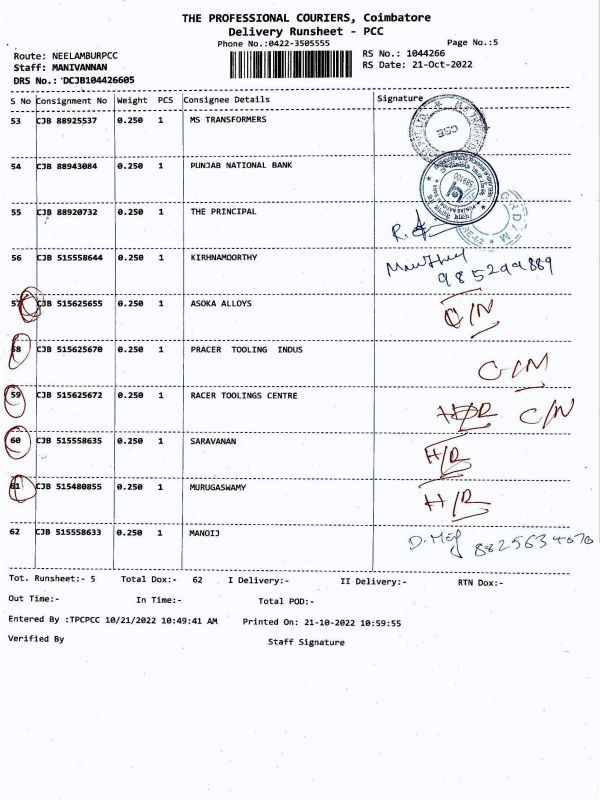 THE PROFESSIONAL COURIERS, Coimbatore
Delivery Runsheet - PCC
Phone No.:0422-3505555 Page No.:5
Route: NEELAMBURPCC RS No.: 1044266
Staff: MANIVANNAN RS Date: 21-Oct-2022
DRS No.: DCJB104426605
S No Consignment No Weight PCS Consignee Details Signature
53 CJB 88925537 0.250 1 MS TRANSFORMERS
CBE
54 CJB 88943084 0.250 1 PUNJAB NATIONAL BANK
55 CJB 88920732 0.250 1 THE PRINCIPAL
56 CJB 515558644 0.250 1 KIRHNAMOORTHY
57 CJB 515625655 0.250 1 ASOKA ALLOYS C/N
58 CJB 515625670 0.250 1 PRACER TOOLING INDUS C/N
59 CJB 515625672 0.250 1 RACER TOOLINGS CENTRE C/N
60 CJB 515558635 0.250 1 SARAVANAN H/R
61 CJB 515480855 0.250 1 MURUGASWAMY H/R
62 CJB 515558633 0.250 1 MANOIJ
Tot. Runsheet:- 5 Total Dox:- 62 I Delivery:- II Delivery:- RTN Dox:-
Out Time:- In Time:- Total POD:-
Entered By :TPCPCC 10/21/2022 10:49:41 AM Printed On: 21-10-2022 10:59:55
Verified By Staff Signature